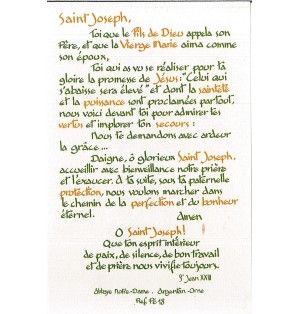 Saint Joseph,
Toi que le Fils de Dieu appela son
Père, et que la Vierge Marie aima comme
son époux,
Toi qui as vu se réaliser pour ta
gloire la promesse de Jésus : "Celui qui
s'abaisse sera élevé" et dont la sainteté
et la puissance sont proclamées partout,
nous voici devant toi pour admirer tes
vertus et implorer ton secours :
Nous te demandons avec ardeur
la grâce ...
Daigne, ô glorieux Saint Joseph,
accueillir avec bienveillance notre prière
et l'exaucer. À ta suite, sous ta paternelle
protection, nous voulons marcher dans
le chemin de la perfection et du bonheur
éternel.
amen
O Saint Joseph !
Que ton esprit intérieur
de paix, de silence, de bon travail
et de prière nous vivifie toujours.
Jean XXIII
Abbaye Notre-Dame. Argentan-Orne
Réf PE 18